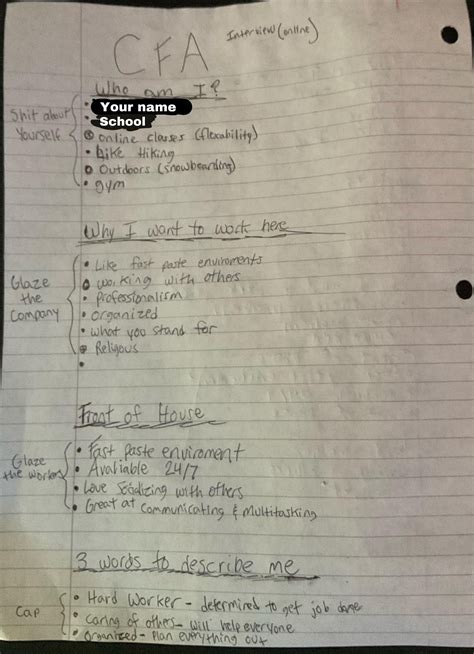 CFA
Interview (online)
Who am I?
Shit about
Yourself
• Your name
• School
• online classes (flexability)
• Like Hiking
• Outdoors (snowboarding)
• gym
Why I want to work here
Glaze
the
Company
• Like fast paste enviroments
• working with others
• Professionalism
• organized
• what you stand for
• Relgous
•
Front of House
Glaze
the workers
• Fast Paste enviroment
• Avaliable 24/7
• Love Socilizing with others
• Great at communicating & multitasking
3 words to describe me
Cap
• Hard Worker - determined to get job done
• Caring of others - will help everyone
• Organized - Plan everything out